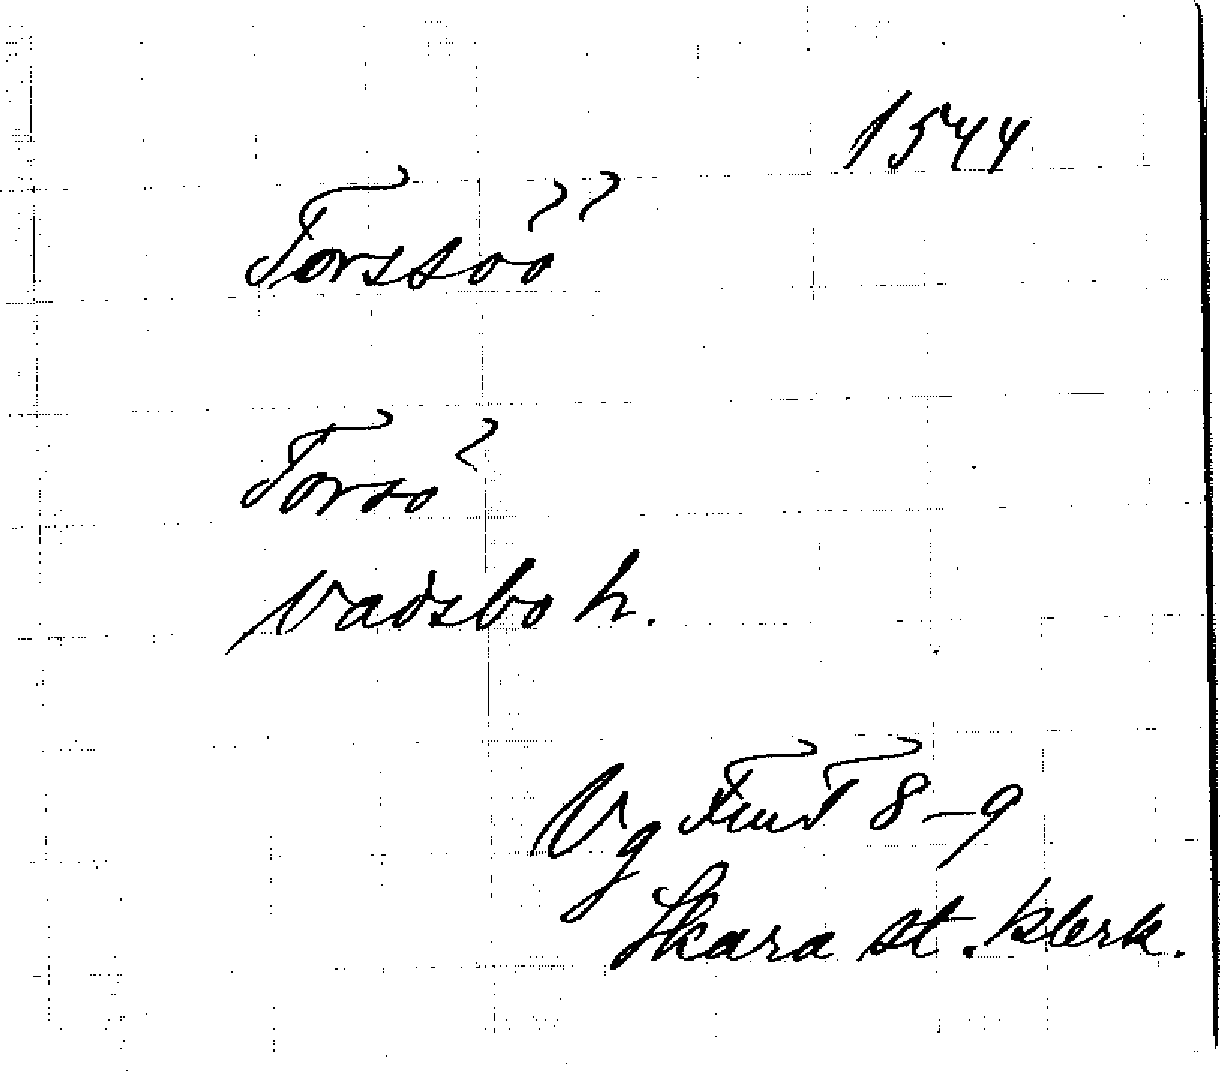 1544
Torssöö
Torsö
Vadsbo h.
Vg FmT 8-9
Skara st. klerk.